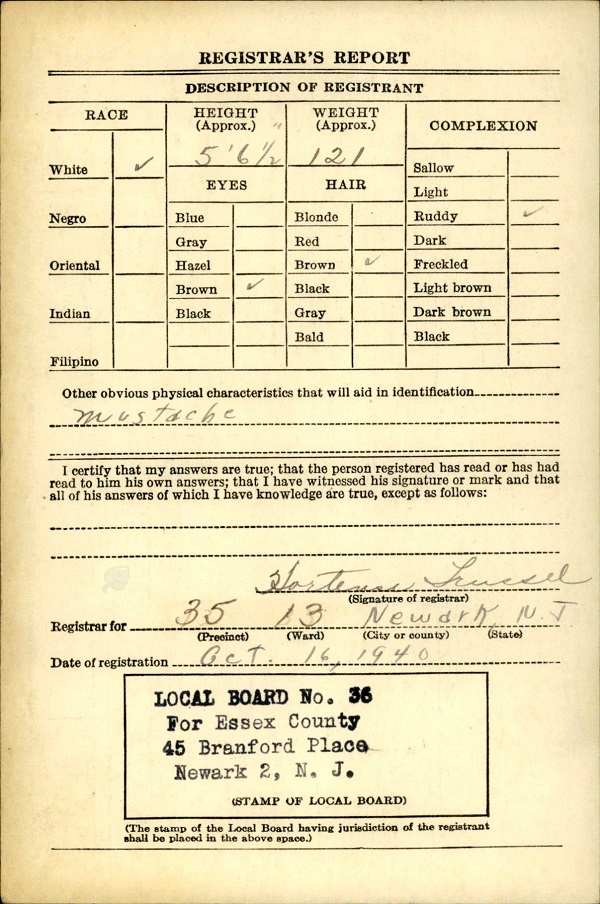 REGISTRAR'S REPORT
DESCRIPTION OF REGISTRANT
RACE
HEIGHT
(Approx.)
WEIGHT
(Approx.)
COMPLEXION
5' 6 1/2"
121
White ✓
Negro
Oriental
Indian
Filipino
EYES
Blue
Gray
Hazel
Brown ✓
Black
HAIR
Blonde
Red
Brown ✓
Black
Gray
Bald
Sallow
Light
Ruddy ✓
Dark
Freckled
Light brown
Dark brown
Black
Other obvious physical characteristics that will aid in identification
mustache
I certify that my answers are true; that the person registered has read or has had
read to him his own answers; that I have witnessed his signature or mark and that
all of his answers of which I have knowledge are true, except as follows:
Hortense
(Signature of registrar)
Registrar for 35 13 Newark, N. J.
(Precinct) (Ward) (City or county) (State)
Date of registration Oct. 16, 1940
LOCAL BOARD No. 36
For Essex County
45 Branford Place
Newark 2, N. J.
(STAMP OF LOCAL BOARD)
(The stamp of the Local Board having jurisdiction of the registrant
shall be placed in the above space.)